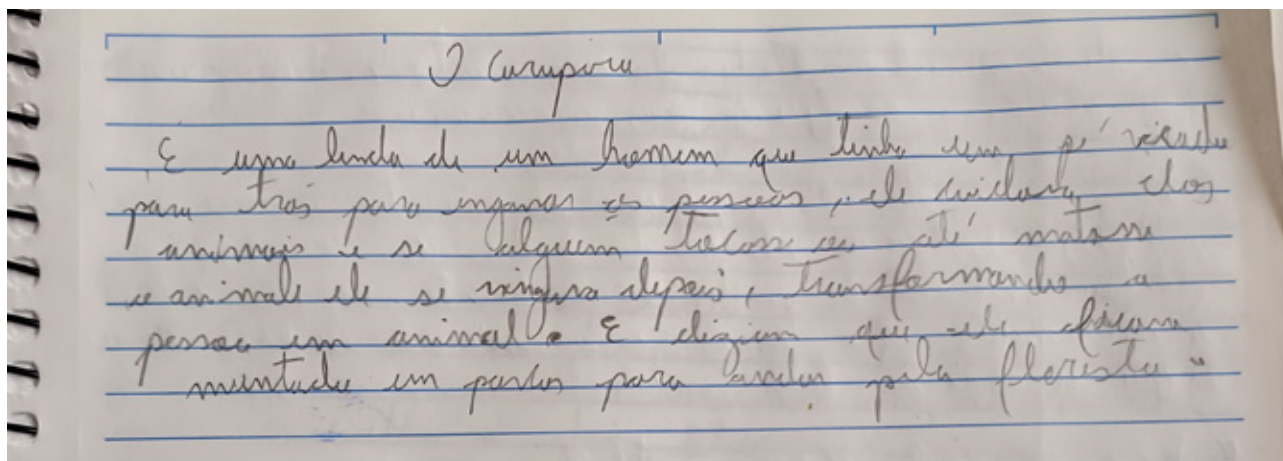 O Curupira
É uma lenda de um homem que tinha um pé virado
para trás para enganar as pessoas, ele cuidava dos
animais e se alguém tocasse ou até matasse
o animale ele se vingava depois, transformando a
pessoa em animal. E diziam que ele ficava
muntado em porcos para andar pela floresta.